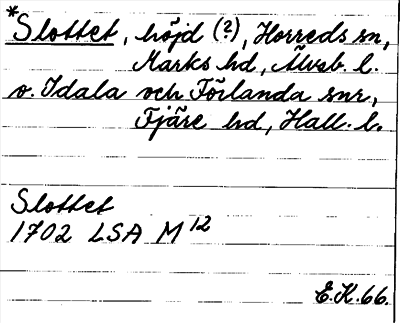 *Slottet, höjd (?), Horreds sn,
Marks hd, Älvsb. l.
o. Idala och Förlanda snr,
Fjäre hd, Hall. l.
Slottet
1702 LSA M 12
E.K. 66.